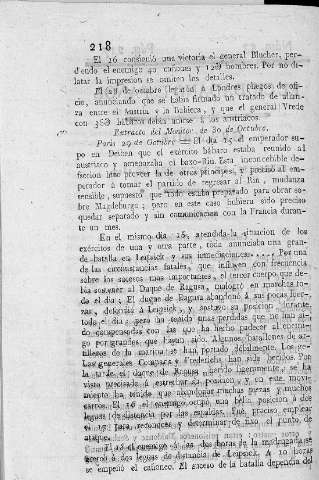 218
El 16 consiguió una victoria el general Blucher, per-
diendo el enemigo 40 cañones y 12 hombres. Por no di-
latar la impresion se omiten los detalles.
El 28 de octubre llegaron á Londres pliegos de ofi-
cio, anunciando que se habia firmado un tratado de alian-
za entre el Austria y la Babiera, y que el general Vrede
con hombres debia unirse á los austriacos.
Extracto del Monitor de 30 de Octubre.
Paris 29 de Octubre = El dia 15 el emperador su-
po en Deuben que el exército bábaro estaba reunido al
austriaco y amenazaba el baxo-Rin. Esta inconcebible de-
feccion hizo proveer la de otros príncipes, y precisó al em-
perador á tomar el partido de regresar al Rin, mudanza
sensible, supuesto que todo estaba preparado para obrar so-
bre Magdeburgo; pero en este caso hubiera sido preciso
quedar separado y sin comunicacion con la Francia durante
un mes.
En el mismo dia 15, atendida la situacion de los
exércitos de una y otra parte, todo anunciaba una gran-
de batalla en Leipsick y sus inmediaciones.... Por una
de las circunstancias fatales, que influyen con frecuencia
sobre los sucesos mas importantes, el tercer cuerpo, que de-
bia sostener al Duque de Ragusa, malogró en marchas to-
do el dia; El duque de Ragusa abandonó á sus pocas fuer-
zas, defendió á Leipsick, y sostuvo su posicion durante
todo el dia; pero ha tenido unas pérdidas que no han si-
do compensadas con las que ha hecho padecer al enemi-
go por grandes que hayan sido. Algunos batallones de ar-
tilleros de la marina se han portado débilmente. Los ge-
nerales Compans y Frederichs han sido heridos. Por
la tarde el duque de Ragusa, herido ligeramente, se ha
visto precisado á estrechar su posicion, y en este movi-
miento ha tenido que abandonar muchas piezas y muchos
carros. El 16 el enemigo ocupó una bella posicion á dos
leguas de distancia por las espaldas. Fué preciso emplear
el 17 para reducirla y determinar de fixo el punto de
ataque.
El 18 el enemigo á las dos horas de la madrugada se
acercó á dos leguas de distancia de Leipsick. A 10 horas
se empeñó el cañoneo. El suceso de la batalla dependia del